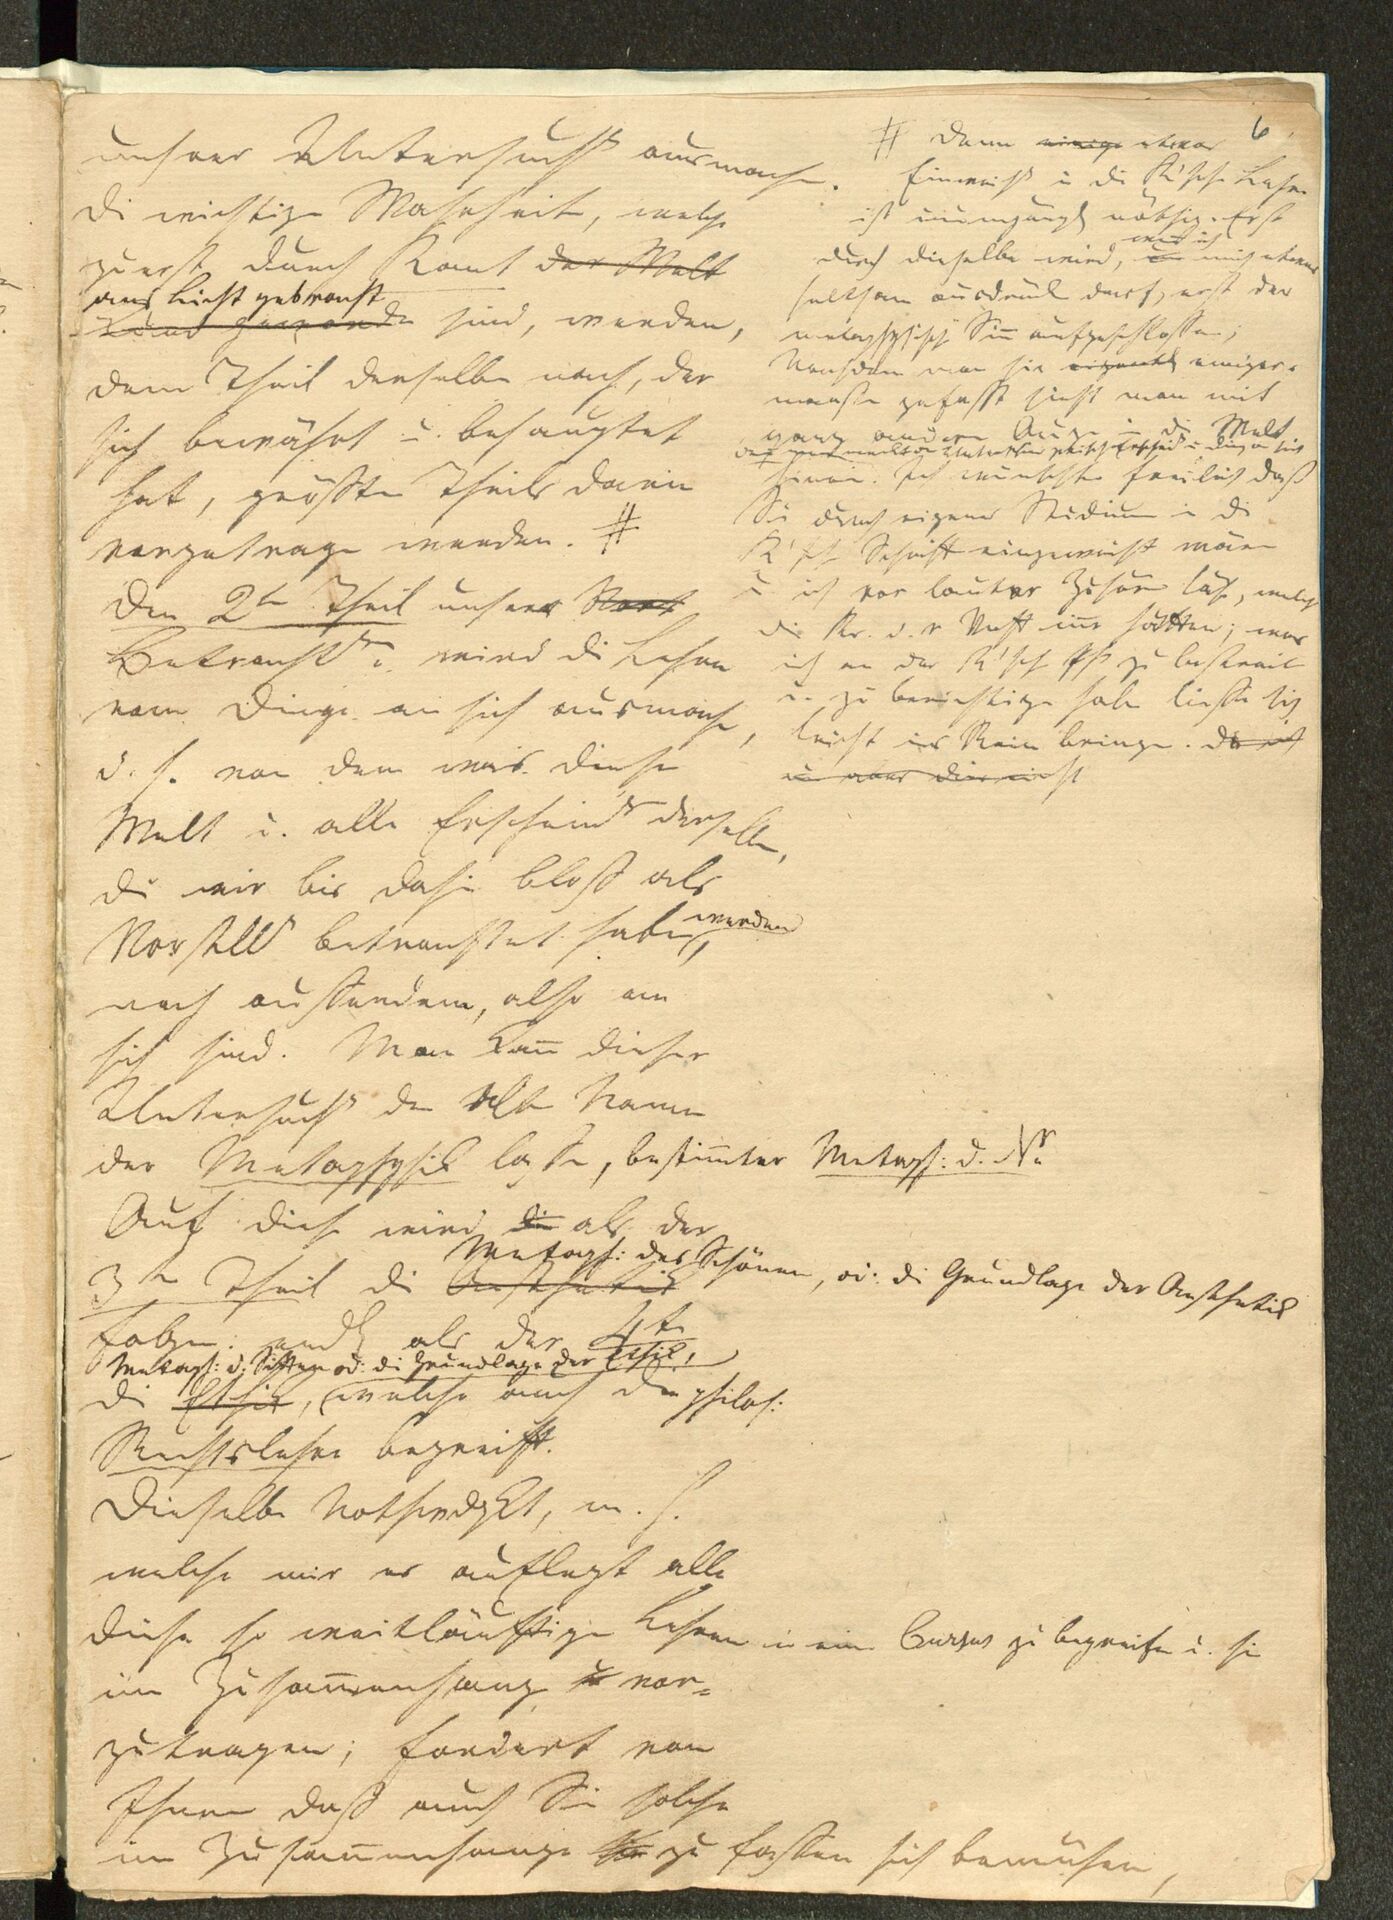 6
unsrer Untersuchg ausmachen.
Die wichtige Wahrheiten, welche
zuerst durch Kant der Welt
ans Licht gebracht
sind, werden,
dem Theil derselben nach, der
sich bewährt u. behauptet
hat, größten Theils darin
vorgetragen werden. #
Den 2ten Theil unsrer
Betrachtgn wird die Lehre
vom Dinge an sich ausmachen,
d. h. von dem was diese
Welt u. alle Erscheingn derselben,
die wir bis dahin bloß als
Vorstellg betrachtet haben werden,
noch außerdem, also an
sich sind. Man kann dieser
Untersuchg den alten Namen
der Metaphysik lassen, bestimmter Metaph: d. Nr
Auf diese wird die als der
Metaph: des Schönen, od: die Grundlage der Aesthetik
3te Theil die Aesthetik
folgen: endl als der 4te
Metaph: d. Sitten od: die Grundlage der Ethik,
die Ethik, welche auch die philos:
Rechtslehre begreift.
Dieselbe Nothwdgkt, m. H.
welche mir es auflegt alle
diese so weitläuftigen Lehren in einen Cursus zu begreifen u. sie
im Zusammenhang vor-
zutragen; fordert von
Ihnen daß auch Sie solche
im Zusammenhange zu fassen sich bemühen,
# Denn einige etwas
Einweihg in die K'sche Lehre
ist unumgängl nöthig. Erst
durch dieselbe wird, wenn ich mich etwas
seltsam ausdrücken darf, erst der
metaphysische Sinn aufgeschlossen;
Nachdem man sie einiger-
maaßen gefaßt sieht man mit
ganz andern Augen in die Welt
hinein. Ich wünschte freilich daß
Sie durch eignes Studium in die
K'schen Schriften eingeweiht wären
u. ich vor lauter Zuhörern läse, welche
die Kr. d. r Vnft inne hätten; was
ich an der K'schen Ph zu bestreiten
u. zu berichtigen habe ließe sich
leicht ins Reine bringen. da es
nun aber dies nicht